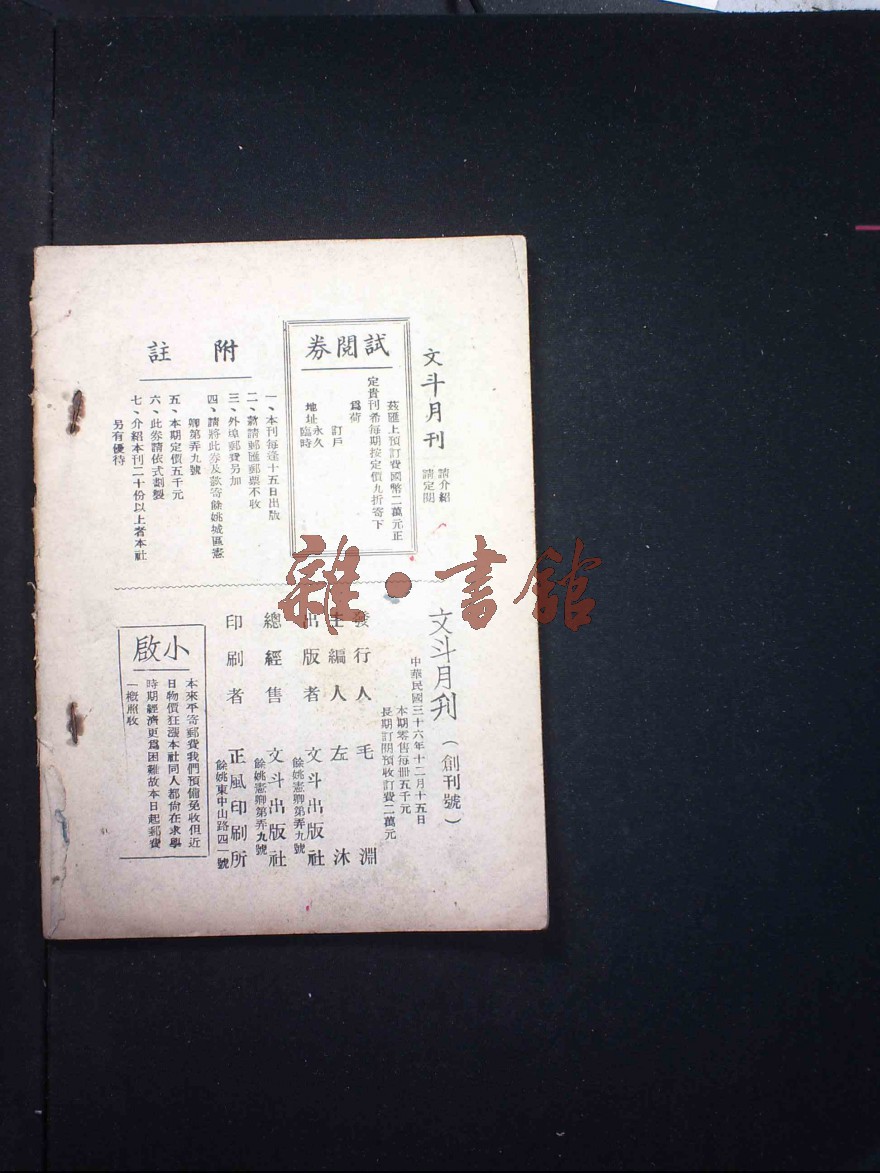 文斗月刊
請介紹
請定閱
試閱券
茲匯上預訂費國幣二萬元正
定貴刊希每期按定價九折寄下
爲荷
訂戶
地址永久
臨時
附註
一、本刊每逢十五日出版
二、款請郵匯郵票不收
三、外埠郵費另加
四、請將此券及款寄餘姚城區憲
卿第弄九號
五、本期定價五千元
六、此券請依式劃製
七、介紹本刊二十份以上者本社
另有優待
文斗月刊（創刊號）
中華民國三十六年十二月十五日
本期零售每冊五千元
長期訂閱預收訂費二萬元
發行人 毛淵
主編人 左沐
出版者 文斗出版社
餘姚憲卿第弄九號
總經售 文斗出版社
餘姚憲卿第弄九號
印刷者 正風印刷所
餘姚東中山路四一號
小啟
本來平寄郵費我們預備免收但近
日物價狂漲本社同人都尙在求學
時期經濟更爲困難故本日起郵費
一概照收
雜·書館